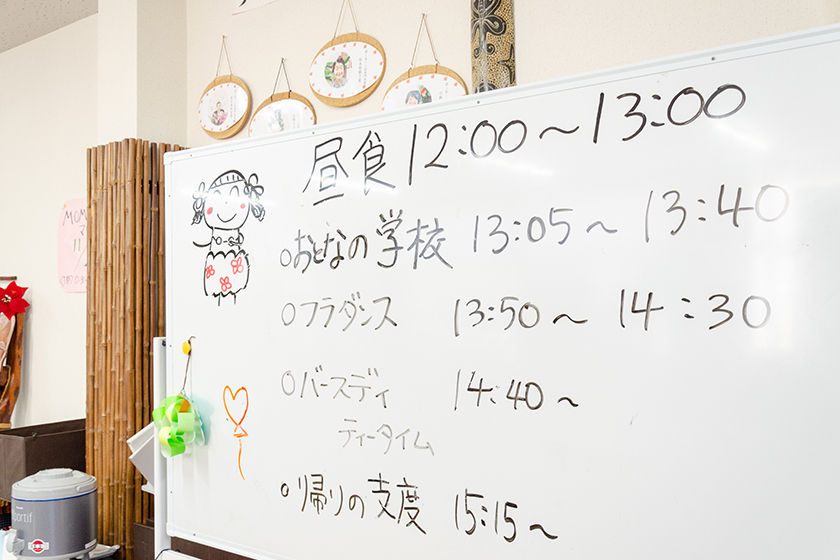 昼食 12:00～13:00
○おとなの学校 13:05～13:40
○フラダンス 13:50～14:30
○バースディ 14:40～
ティータイム
○帰りの支度 15:15～
MOM
portif